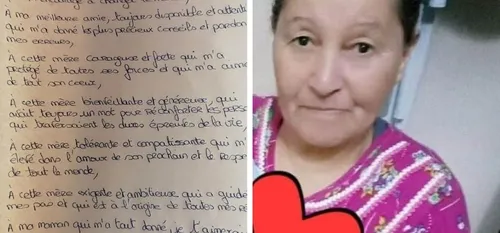 A ma meilleure amie, toujours disponible et
qui m'a donné les plus précieux conseils et pardonné
mes erreurs,
A cette mère courageuse et forte qui m'a
protégé de toutes ses forces et qui m'a aimé
de tout son coeur,
A cette mère bienveillante et généreuse, qui
avait toujours un mot pour réconforter les
qui traversaient les dures épreuves de la vie,
A cette mère tolérante et compatissante qui m'
élevé dans l'amour de son prochain et le
de tout le monde,
A cette mère exigeante et ambitieuse qui a guidé
mes pas et qui est à l'origine de toutes mes
A ma maman qui m'a tout donné, je t'aimerai